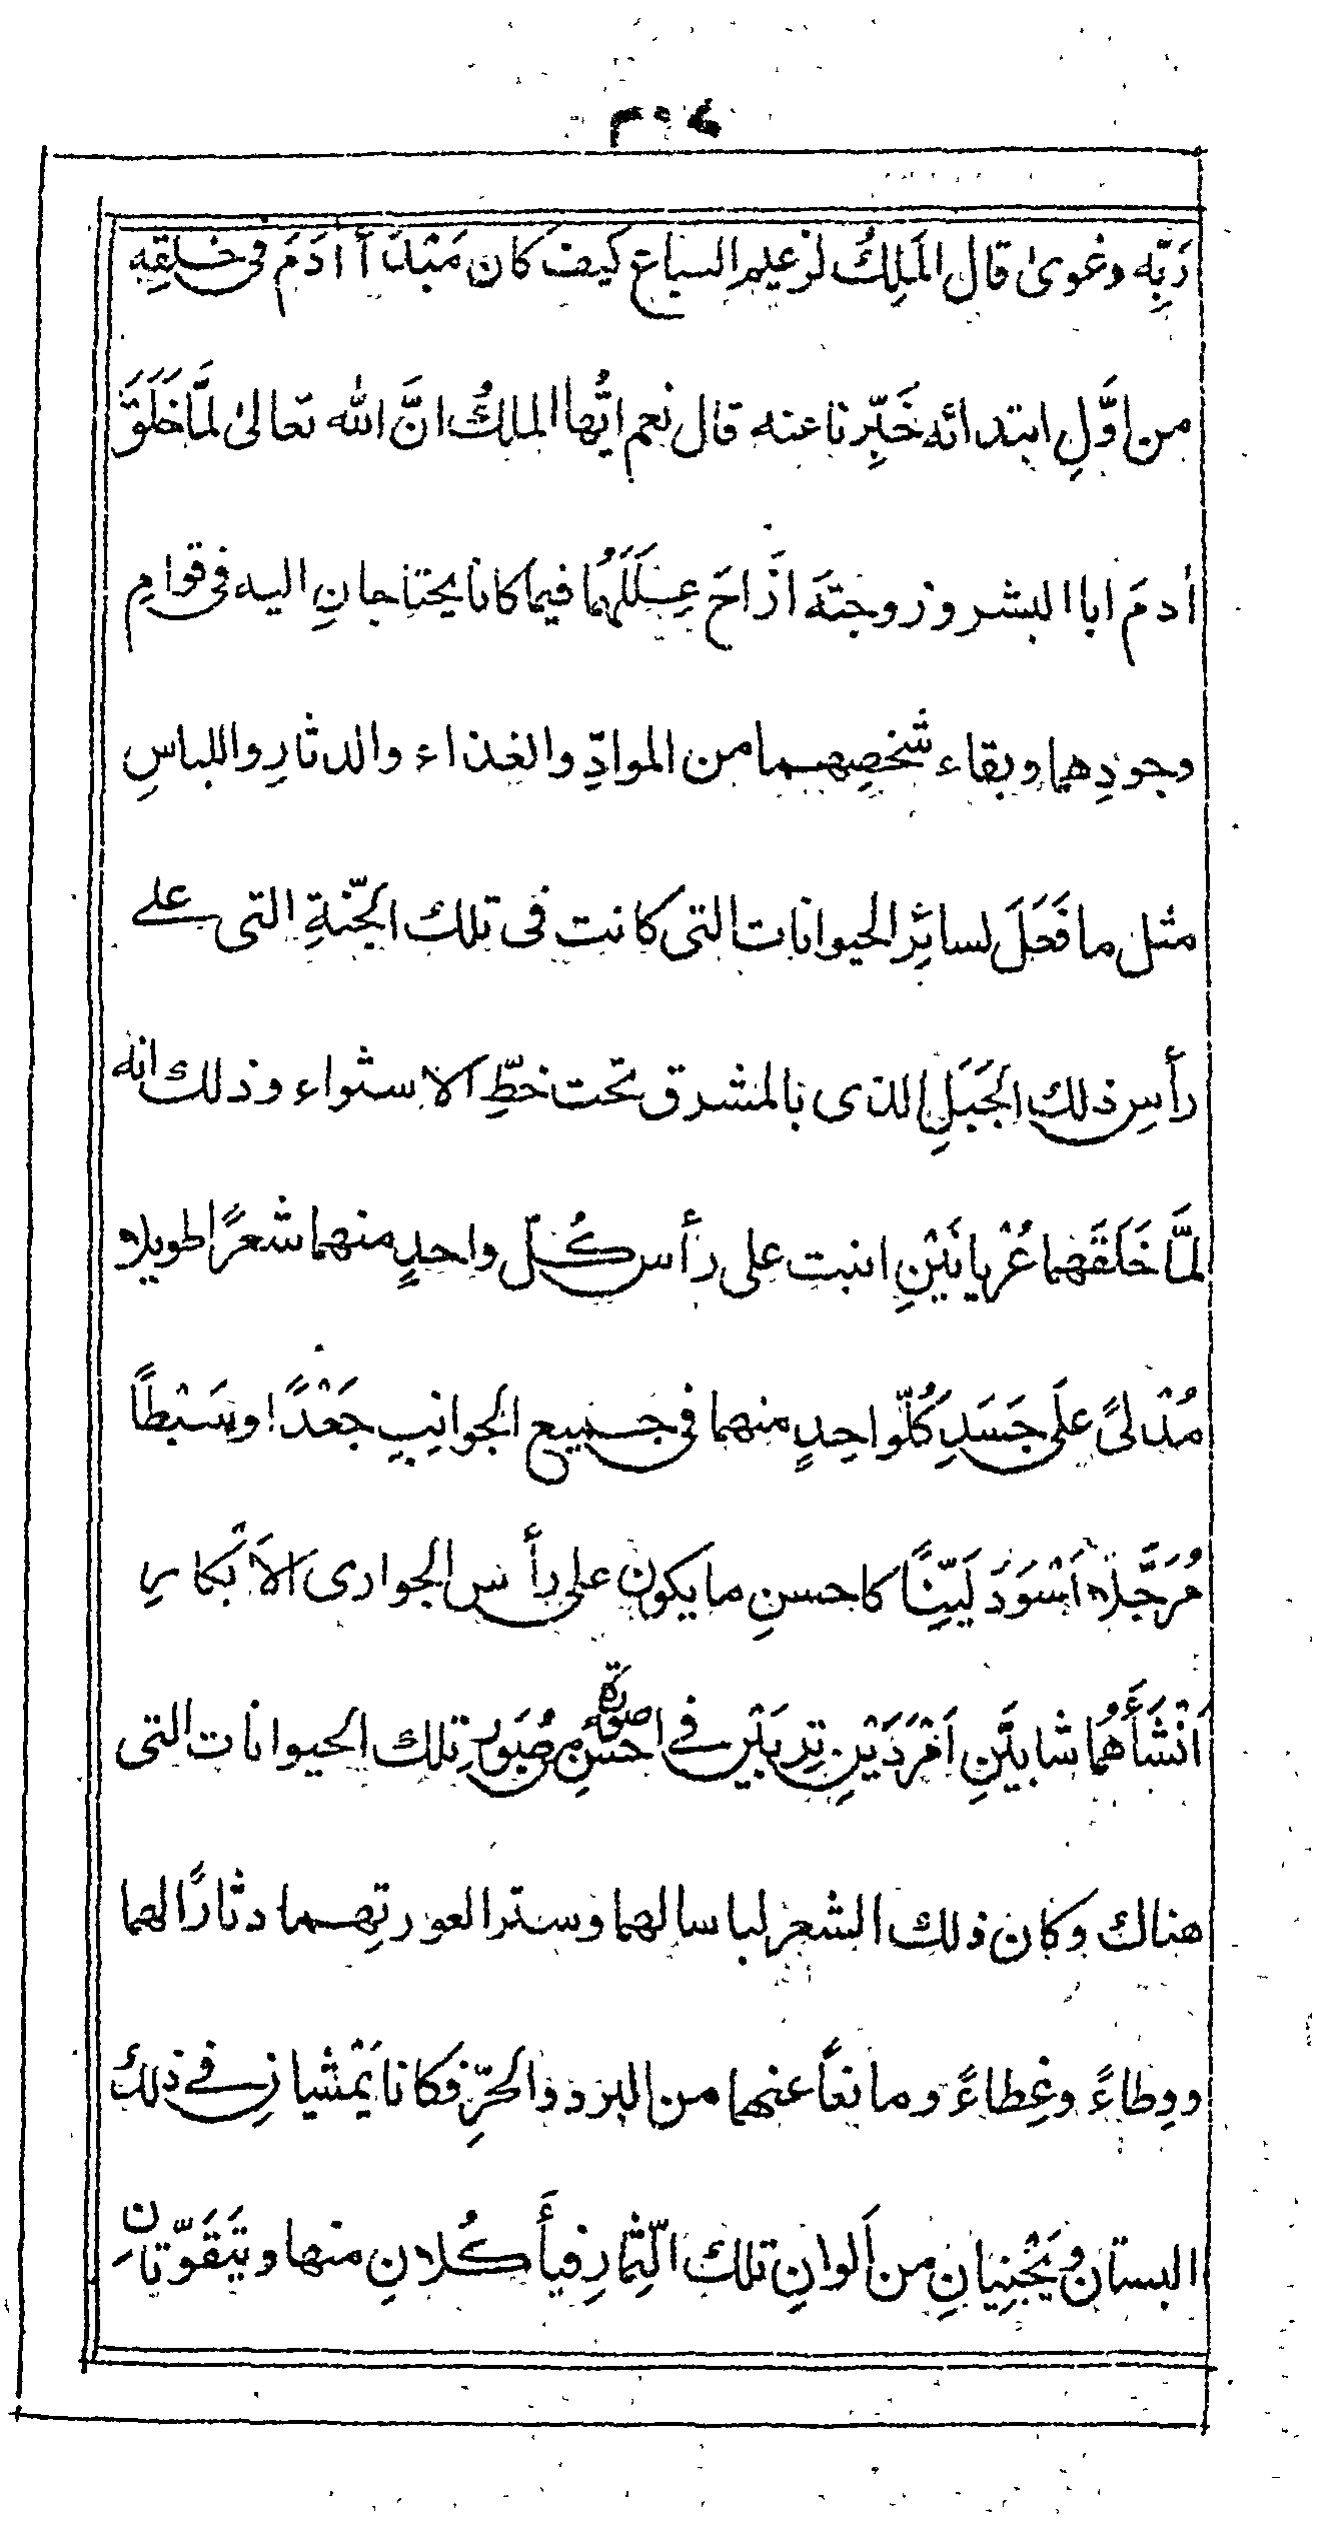 ٣٠٤
رَبِّه وغوىٰ قال المَلِكُ لزعيم السباع كيف كان مَبْدَأ اٰدَمَ فى خلقِهِ
من اوَّلِ ابتدائه خَبِّرنا عنه قال نعم ايُّها الملكُ انَّ الله تعالىٰ لمَّا خَلَقَ
اٰدمَ ابا البشر وزوجتَهَ ازَاحَ عِلَلَهُمَا فيما كانا يحتاجانِ اليه فى قوامِ
وجودِهما وبقاء شخصِهما من الموادِّ والغذاء والدثارِ واللباسِ
مثل ما فَعَلَ لسائِرِ الحيوانات التى كانت فى تلك الجنّةِ التى على
رأسِ ذلك الجَبَلِ الذى بالمشرق تحت خطِّ الاستواء وذلك انه
لمَّا خَلَقَهما عُرْيانَيْنِ انبت على رأس كُلّ واحدٍ منهما شعرًا طويلا
مُدْلىً علَى جَسَدِ كُلّ واحِدٍ منهما فى جميع الجوانِبِ جَعْدًا وسَبْطًا
مُرَجَّلاً اَسْوَدَ لَيّنًا كاحسنِ ما يكون على رأس الجوارى الاَبْكارِ
اَنْشَأَهُمَا شابيَّنِ اَمْرَدَيْنِ تِربَيْنِ فى احسنِ صورة من صُوَرِ تلك الحيوانات التى
هناك وكان ذلك الشعر لباسا لهما وسترا لعورتِهما دثارًا لهما
ووِطاءً وغِطاءً ومانعاً عنهما من البرد والحرِّ فكانا يَمْشيانِ فى ذلك
البستان ويَجْنِيانِ من اَلوانِ تلك الثِّمارِ فيأكُلانِ منها ويَتَقَوّتانِ